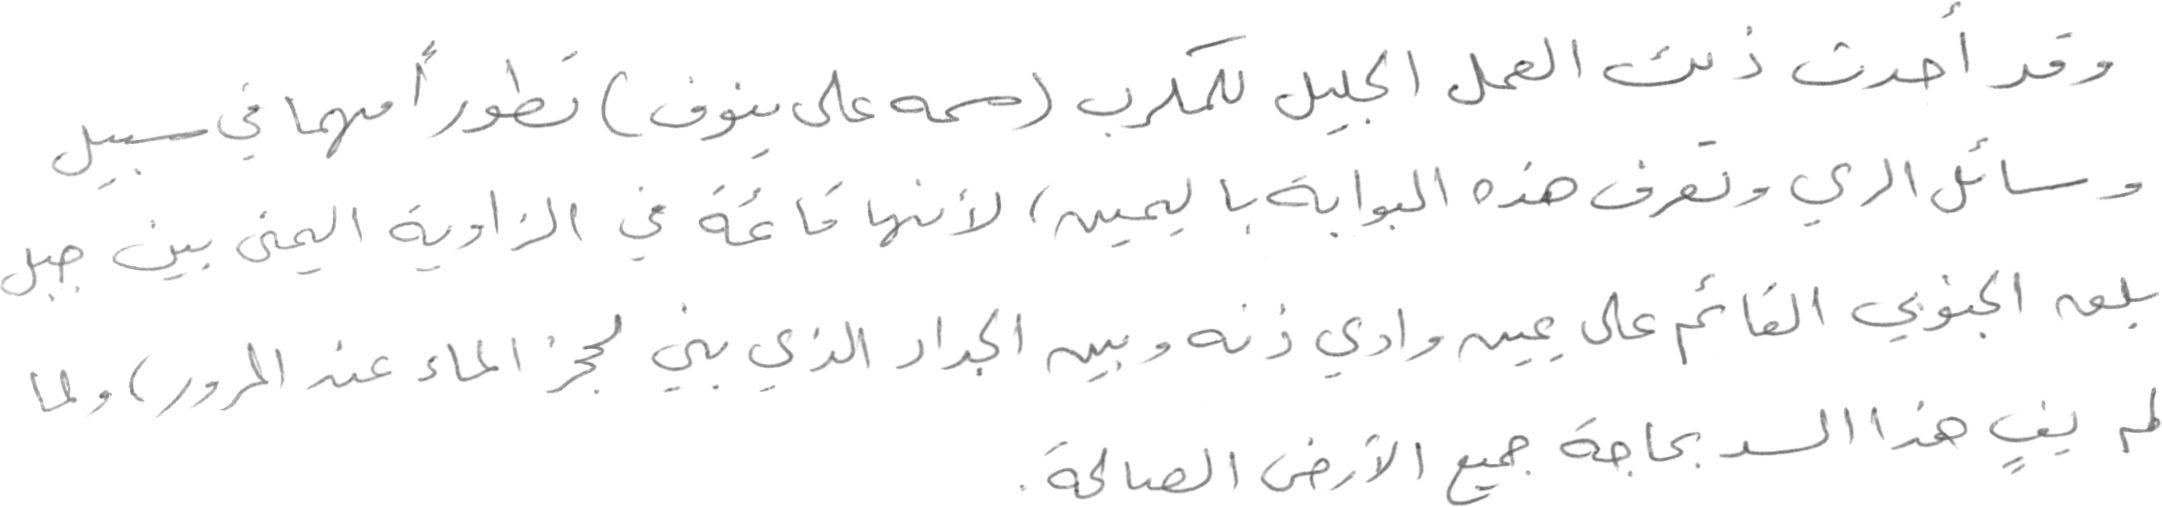 وقد أحدث ذلك العمل الجليل للمكرب (سمه على ينوف) تطوراً مهما في سبيل
وسائل الري وتعرف هذه البوابة باليمين، لأنها قائمة في الزاوية اليمنى بين جبل
بلق الجنوبي القائم على يمين وادي ذنه وبين الجدار الذي بني لحجز الماء عند المرور، ولما
لم يفِ هذا السد بحاجة جميع الأرض الصالحة.